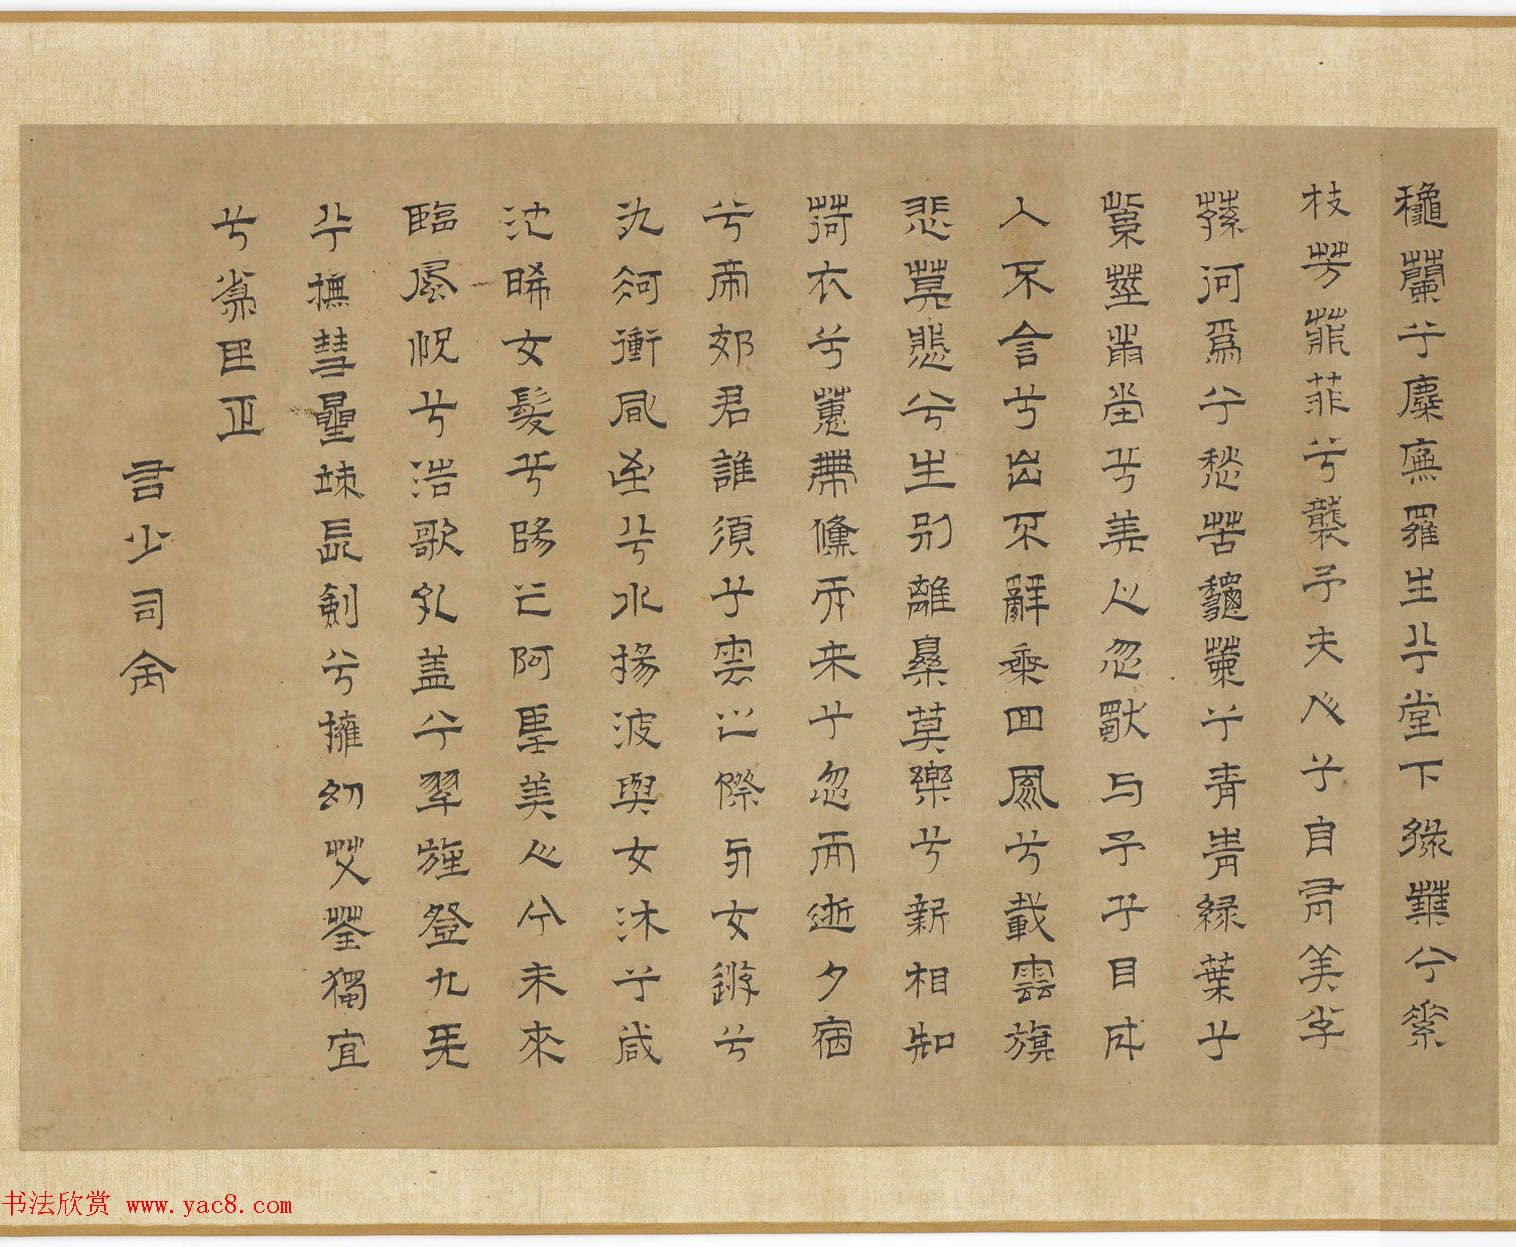 穐蘭兮麋蕪羅生兮堂下緑華兮素
枝芳菲菲兮襲予夫人兮自有美子
蓀何爲兮愁苦龝蘭兮青青緑葉兮
紫莖滿堂兮美人忽獨与予兮目成
入不言兮出不辭乘回風兮載雲旗
悲莫悲兮生別離樂莫樂兮新相知
荷衣兮蕙帶儵而来兮忽而逝夕宿
兮帝郊君誰須兮雲之際与女遊兮
九河衝風至兮水揚波與女沐兮咸
池晞女髮兮陽之阿望美人兮未來
臨風怳兮浩歌孔蓋兮翠旍登九天
兮撫彗星竦長剣兮擁幼艾荃獨宜
兮為民正
右少司命
书法欣赏 www.yac8.com